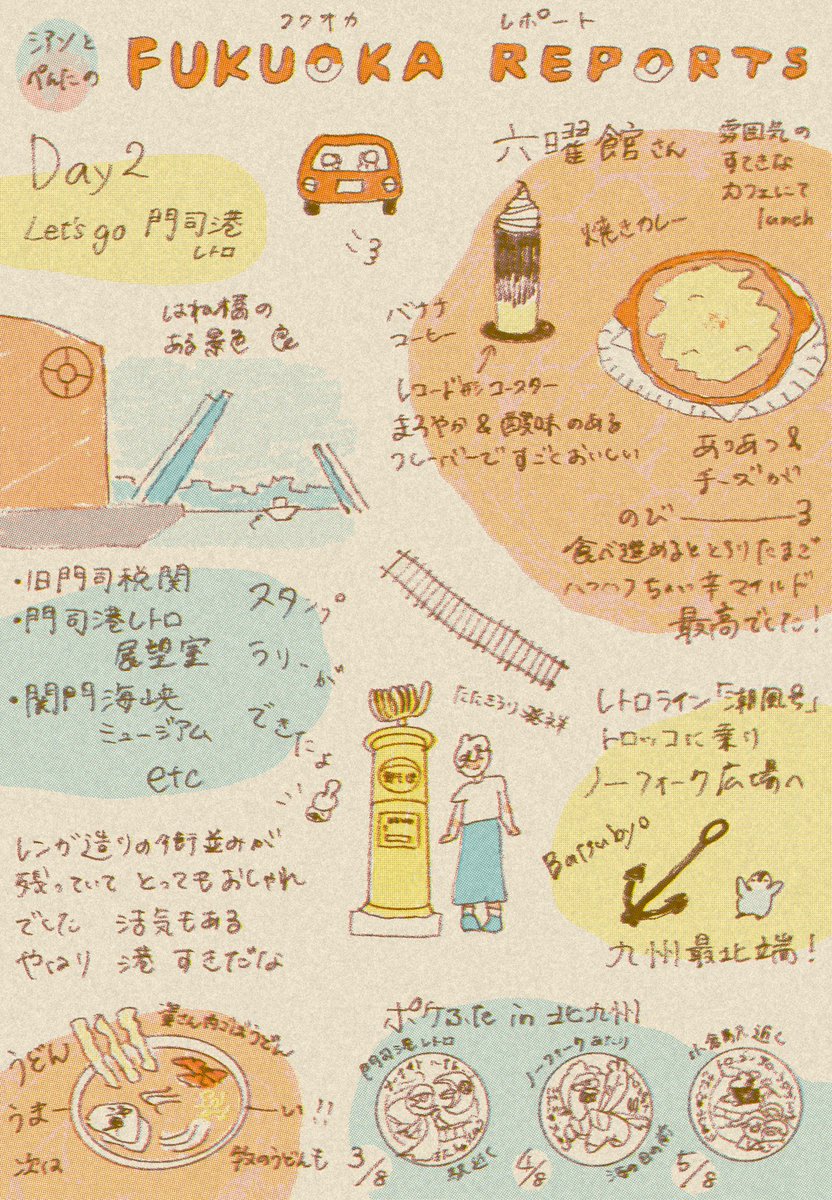 フクオカ レポート
シアンと
ぺんたの
FUKUOKA REPORTS
Day2
Let's go 門司港
レトロ
六曜館さん
雰囲気の
すてきな
カフェにて
lunch
焼きカレー
バナナ
コーヒー
レコード形コースター
まろやか&酸味のある
フレーバーですごくおいしい
あつあつ&
チーズが
のび──る
食べ進めるととろりたまご
ハフハフちょい辛マイルド
最高でした!
はね橋の
ある景色
・旧門司税関
・門司港レトロ
展望室
・関門海峡
ミュージアム
etc
スタンプ
ラリーが
できたよ
レンガ造りの街並みが
残っていて とってもおしゃれ
でした 活気もある
やはり 港 すきだな
たたきうり発祥
レトロライン「潮風号」
トロッコに乗り
ノーフォーク広場へ
Batsubyo
九州最北端!
資さん肉ごぼううどん
うどん
うまーーい!!
次は
牧のうどんも
ポケふた in 北九州
門司港レトロ
駅近く
3/8
ノーフォークあたり
4/8
小倉駅近く
5/8